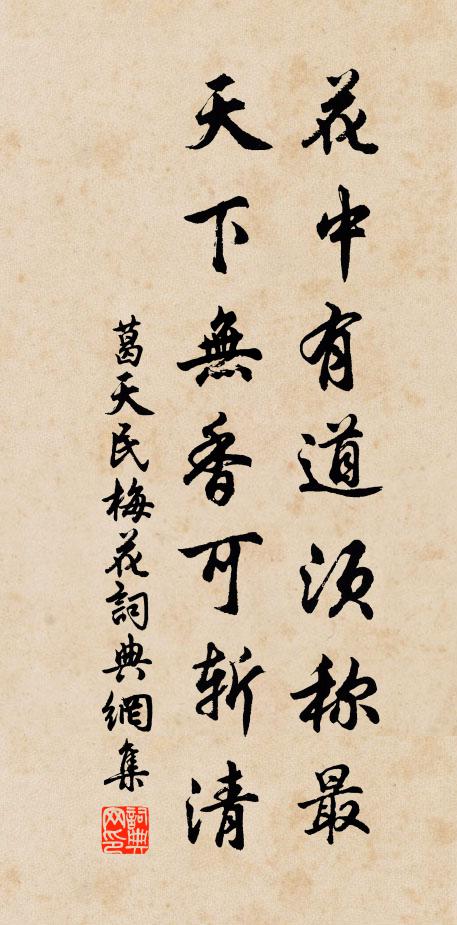 花中有道须称最
天下無香可斩清
葛天民梅花詞典網集
詞典网印